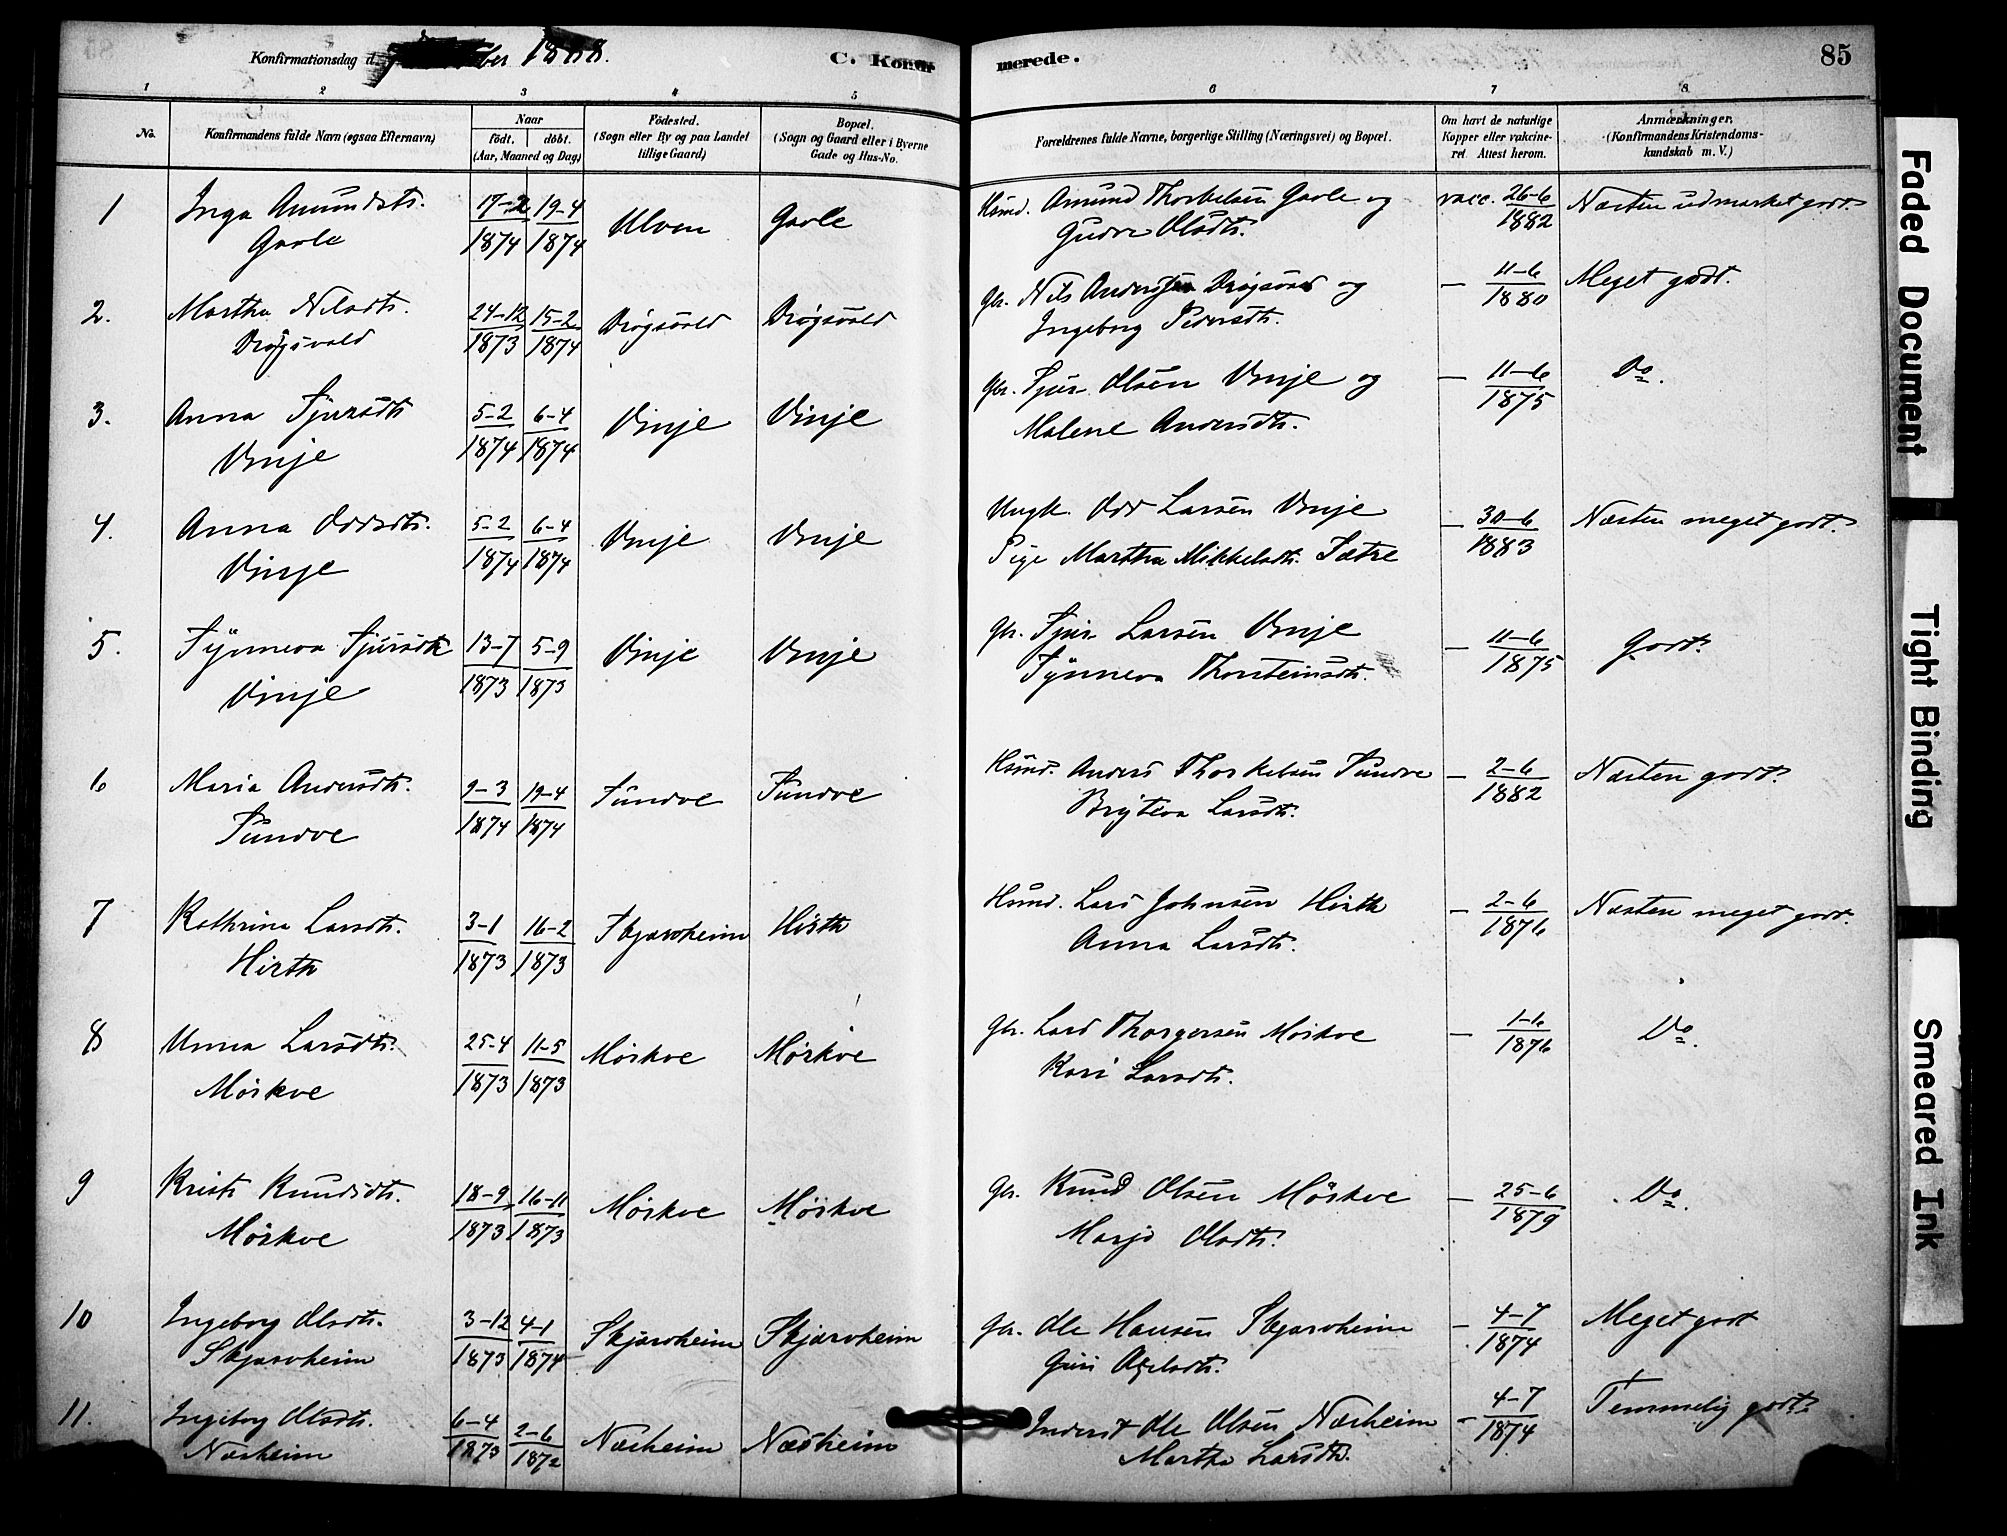 Konfirmationsdag d. ber 1888. C. Konfir merede. 85
1 2 3 4 5 6 7 8
No. Konfirmandens fulde Navn (ogsaa Efternavn) Naar født. døbt. (Aar, Maaned og Dag) Födested. (Sogn eller By og paa Landet tillige Gaard) Bopæl. (Sogn og Gaard eller i Byerne Gade og Hus-No. Forældrenes fulde Navne, borgerlige Stilling (Næringsvei) og Bopæl. Om havt de naturlige Kopper eller vakcineret. Attest herom. Anmærkninger. (Konfirmandens Kristendomskundskab m. V.)
1 Inga Amundsdtr. 17-2 19-4 Ulven Gavle Husmd. Amund Thorkelsen Gavle og vacc. 26-6 Næsten udmærket godt.
Gavle 1874 1874 Gudve Olsdtr. 1882
2. Martha Nilsdtr. 24-12 15-2 Drøgsvold Drøgsvold Gbr. Nils Andersen Drøgsvold og — 11-6 Meget godt.
Drøgsvold 1873 1874 Ingeborg Pedersdtr. 1880
3. Anna Sjursdtr 5-2 6-4 Vinje Vinje Gbr. Sjur Olsen Vinje og — 11-6 Do.
Vinje 1874 1874 Malene Andersdtr. 1875
4. Anna Oddsdtr. 5-2 6-4 Vinje Vinje Ungk. Odd Larsen Vinje — 30-6 Næsten meget godt.
Vinje 1874 1874 Pige Martha Mikkelsdtr. Sætre 1883
5. Synneva Sjursdtr 13-7 5-9 Vinje Vinje Gbr. Sjur Larsen Vinje — 11-6 Godt.
Vinje 1873 1873 Synneva Thorsteinsdtr. 1875
6 Maria Andersdtr. 9-3 19-4 Sundve Sundve Husmd. Anders Thorkelsen Sundve — 2-6 Næsten godt.
Sundve 1874 1874 Bryteva Larsdtr. 1882
7 Kathrina Larsdtr. 3-1 16-2 Skjærvheim Hirth Husmd. Lars Johnsen Hirth — 2-6 Næsten meget godt.
Hirth 1873 1873 Anna Larsdtr. 1876
8 Unna Larsdtr. 25-4 11-5 Mørkve Mørkve Gbr. Lars Thorgersen Mørkve — 1-6 Do.
Mørkve 1873 1873 Kari Larsdtr. 1876
9 Kristi Knudsdtr. 18-9 16-11 Mørkve Mørkve Gbr. Knud Olsen Mørkve — 25-6 Do.
Mørkve 1873 1873 Marjo Olsdtr. 1879
10 Ingeborg Olsdtr. 3-12 4-1 Skjærvheim Skjærvheim Gbr. Ole Hansen Skjærvheim — 4-7 Meget godt
Skjærvheim 1873 1874 Guri 1874
11. Ingeborg Olsdtr. 6-4 2-6 Næsheim Næsheim Inderst Ole Olsen Næsheim — 4-7 Temmelig godt.
Næsheim 1873 187 Martha Larsdtr. 1874
Faded Document
Tight Binding
Smeared Ink